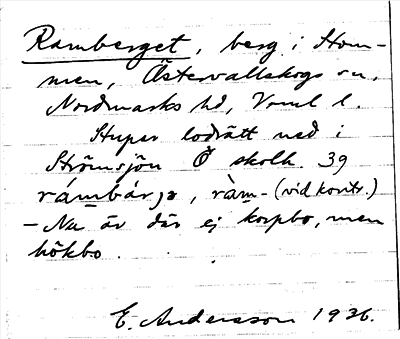 Ramberget, berg i Hom-
men, Östervallskogs sn,
Nordmarks hd, Vrml l.
Stupar lodrätt ned i
Strömsjön Ö skolh. 39
rámbárjə, ràm- (vid kontr.)
– Nu är där ej korpbo, men
hökbo.
E. Andersson 1936.